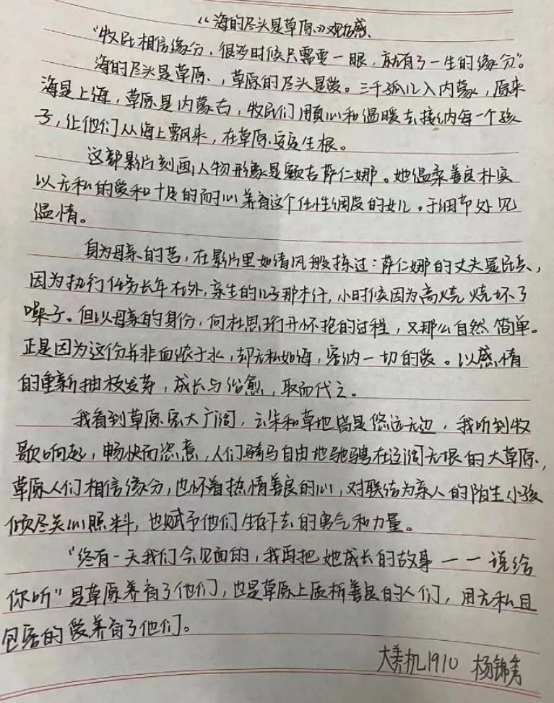 《海的尽头是草原》观后感
"牧民相信缘分，很多时候只需要一眼，就有了一生的缘分"。
海的尽头是草原，草原的尽头是爱。三千孤儿入内蒙，原来
海是上海，草原是内蒙古，牧民们用真心和温暖去接纳每一个孩
子，让他们从海上飘来，在草原安定生根。
这部影片刻画人物形象是额吉萨仁娜。她温柔善良朴实
以无私的爱和十足的耐心养育这个任性倔强的女儿。于细节处见
温情。
身为母亲的苦，在影片里如清风般拣过：萨仁娜的丈夫是民兵，
因为执行任务长年在外，亲生的儿子那木汗，小时候因为高烧烧坏了
嗓子。但以母亲的身份，向杜思珩打开怀抱的过程，又那么自然简单。
正是因为这份并非血浓于水，却无私如海，容纳一切的爱。以感情
的重新抽枝发芽，成长与治愈，取而代之。
我看到草原宏大广阔，云朵和草地皆是悠远无边，我听到牧
歌响起，畅快而恣意，人们骑马自由地驰骋在辽阔无垠的大草原，
草原人们相信缘分，也怀着热情善良的心，对联结为亲人的陌生小孩
倾尽关心照料，也赋予他们生存下去的勇气和力量。
"终有一天我们会见面的，我再把她成长的故事一一说给
你听"是草原养育了他们，也是草原上质朴善良的人们，用无私且
包容的爱养育了他们。
大养机1910 杨锦秀